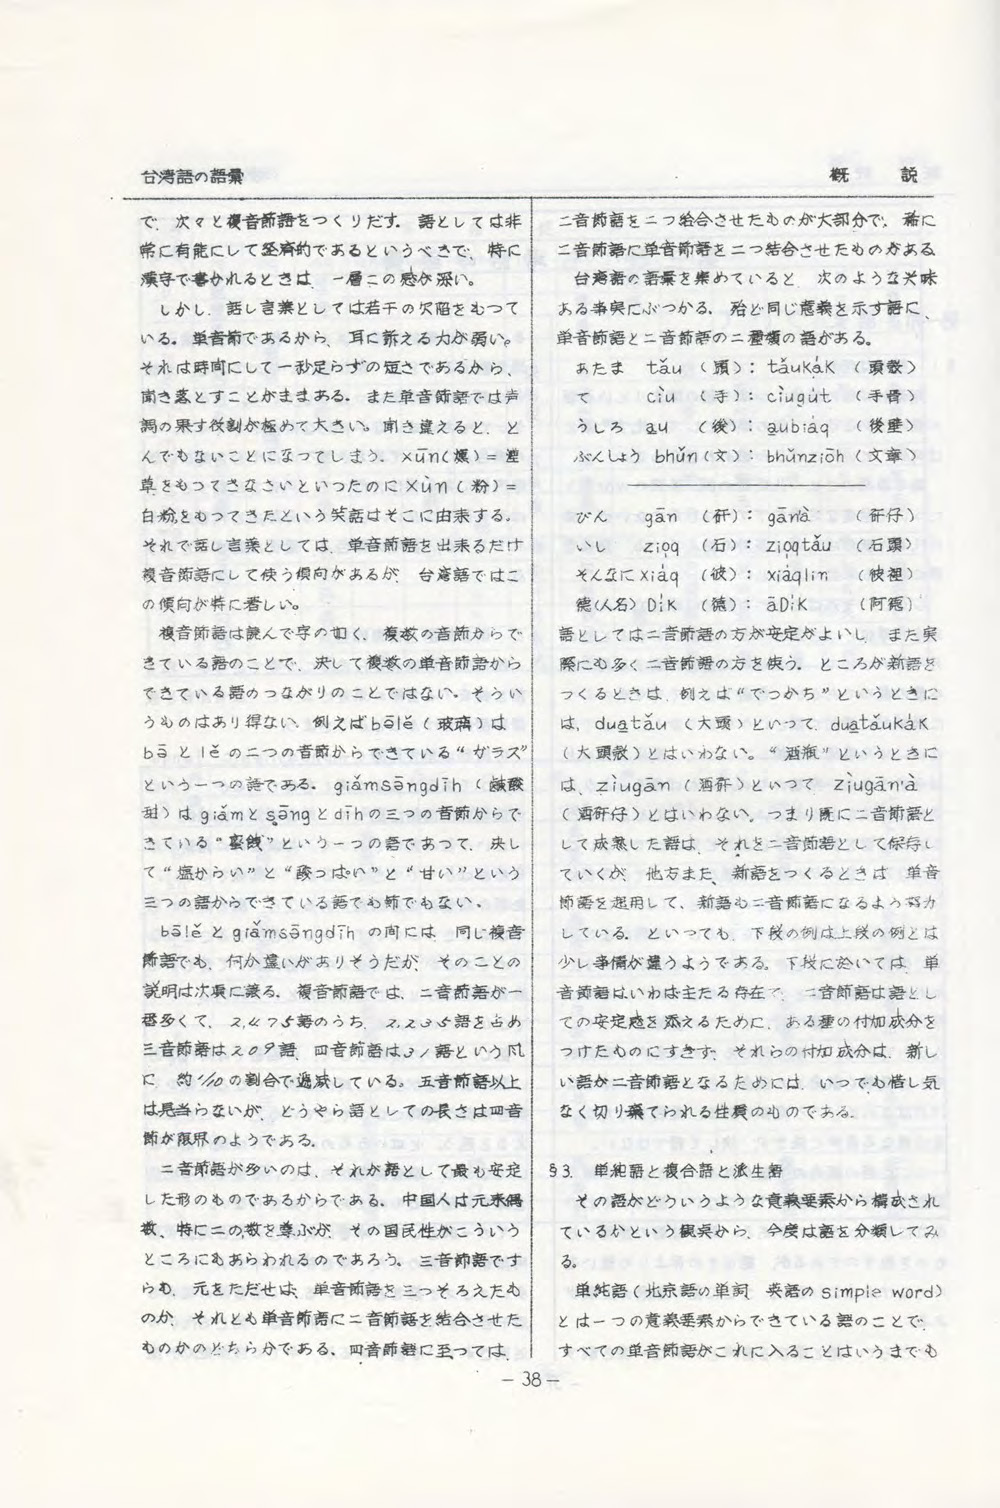 台湾語の語彙
概　説
で、次々と複音節語をつくりだす。語としては非
常に有能にして経済的であるというべきで、特に
漢字で書かれるときは、一層この感が深い。
しかし、話し言葉としては若干の欠陥をもつて
いる。単音節であるから、耳に訴える力が弱い。
それは時間にして一秒足らずの短さであるから、
聞き落とすことがままある。また単音節語では声
調の果す役割が極めて大きい。聞き違えると、と
んでもないことになつてしまう。xūn(燻)＝煙
草をもつてきなさいといつたのにxùn(粉)＝
白粉をもつてきたという笑話はそこに由来する。
それで話し言葉としては、単音節語を出来るだけ
複音節語にして使う傾向があるが、台湾語ではこ
の傾向が特に著しい。
複音節語は読んで字の如く、複数の音節からで
きている語のことで、決して複数の単音節語から
できている語のつながりのことではない。そうい
うものはあり得ない。例えばbōlě(玻璃)は
bō と lě の二つの音節からできている“ガラス”
という一つの語である。giǎmsāngdīh(鹹酸
甜)は giǎm と sāng と dīh の三つの音節からで
きている“蜜餞”という一つの語であつて、決し
て“塩からい”と“酸つぱい”と“甘い”という
三つの語からできている語でも節でもない。
bōlě と giǎmsāngdīh の間には、同じ複音
節語でも、何か違いがありそうだが、そのことの
説明は次項に譲る。複音節語では、二音節語が一
番多くて、2,475語のうち、2,235語を占め
三音節語は209語、四音節語は31語という風
に、約1/10の割合で逓減している。五音節語以上
は見当らないが、どうやら語としての長さは四音
節が限界のようである。
二音節語が多いのは、それが語として最も安定
した形のものであるからである。中国人は元来偶
数、特に二の数を尊ぶが、その国民性がこういう
ところにもあらわれるのであろう。三音節語です
らも、元をただせば、単音節語を三つそろえたも
のか、それとも単音節語に二音節語を結合させた
ものかのどちらかである。四音節語に至つては、
二音節語を二つ結合させたものが大部分で、稀に
二音節語に単音節語を二つ結合させたものがある
台湾語の語彙を集めていると、次のような興味
ある事実にぶつかる。殆ど同じ意義を示す語に、
単音節語と二音節語の二種類の語がある。
あたま　tǎu　(頭)：tǎukák　(頭殻)
て　cìu　(手)：cìugút　(手骨)
うしろ　au　(後)：aubiáq　(後壁)
ぶんしよう　bhǔn(文)：bhǔnziōh(文章)
びん　gān　(矸)：gān'à　(矸仔)
いし　zioq　(石)：zioqtǎu　(石頭)
そんなに　xiáq　(彼)：xiáqlin　(彼裡)
徳(人名)　Dik　(徳)：āDik　(阿徳)
語としては二音節語の方が安定がよいし、また実
際にも多く二音節語の方を使う。ところが新語を
つくるときは、例えば“でつかち”というときに
は、duatǎu (大頭)といつて、duatǎukák
(大頭殻)とはいわない。“酒瓶”というときに
は、zìugān (酒矸)といつて、zìugān'à
(酒矸仔)とはいわない。つまり既に二音節語と
して成熟した語は、それを二音節語として保存し
ていくが、他方また、新語をつくるときは、単音
節語を起用して、新語も二音節語になるよう努力
している。といつても、下段の例は上段の例とは
少し事情が違うようである。下段に於いては、単
音節語はいわば主たる存在で、二音節語は語とし
ての安定感を添えるために、ある種の付加成分を
つけたものにすぎず、それらの付加成分は、新し
い語が二音節語となるためには、いつでも惜し気
なく切り棄てられる性質のものである。
§3.　単純語と複合語と派生語
その語がどういうような意義要素から構成され
ているかという観点から、今度は語を分類してみ
る。
単純語(北京語の単詞、英語の simple word)
とは一つの意義要素からできている語のことで、
すべての単音節語がこれに入ることはいうまでも
－38－